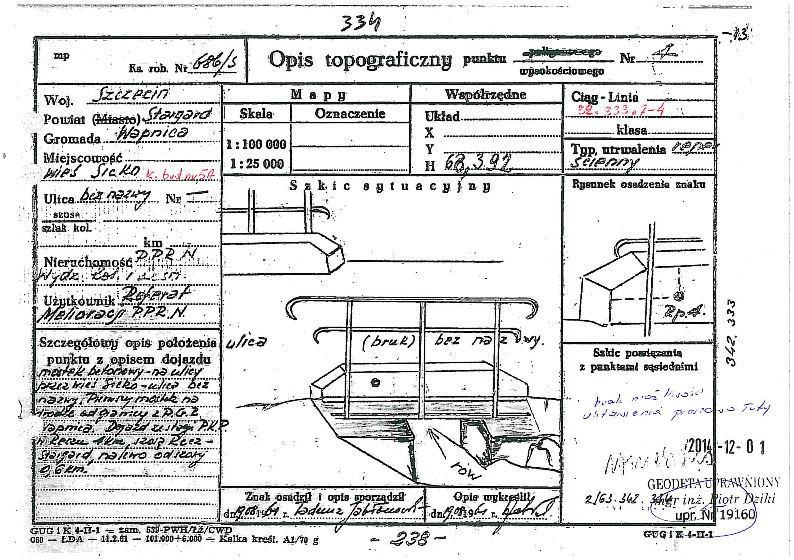 334
-13
mp
Ks. rob. Nr 686/s
Opis topograficzny punktu
poligonowego
wysokościowego
Nr 1
Woj. Szczecin
Powiat (Miasto) Stargard
Gromada Wapnica
Miejscowość
wieś Sicko k. bud nr 5A
Ulica bez nazwy Nr —
szosa
szlak. kol.
km
Nieruchomość P.P.R.N
Użytkownik Referat
Melioracji P.P.R.N
Szczegółowy opis położenia
punktu z opisem dojazdu
mostek betonowy-na ulicy
przez wieś Sicko-ulica bez
nazwy. Pierwszy mostek na
wsi od granicy z P.G.R
Wapnica. Dojazd ze stacji P.K.P
Recz 4km, szosą Recz-
Stargard, na lewo od szosy
0,6km.
Mapy
Skala
Oznaczenie
1:100 000
1:25 000
Współrzędne
Układ
X
Y
H 68,392
Ciąg - Linia
32.333.1-4
klasa
Typ, utrwalenia reper
Ścienny
Szkic sytuacyjny
ulica (bruk) bez nazwy.
rów
Rysunek osadzenia znaku
Rp.1.
342.333
Szkic powiązania
z punktami sąsiednimi
brak możliwości
ustawienia pionowo łaty
2014-12-01
GEODETA UPRAWNIONY
mgr inż. Piotr Dziki
upr. Nr 19160
2/63.342.334
Znak osadził i opis sporządził
dn. 1961 r. Tadeusz
Opis wykreślił
dn. 1961 r.
GUGiK 4-II-1 — zam. 539-PWH/ŁZ/CWD
060 — ŁDA — 11.2.61 — 101.000+6.000 — Kalka kreśl. A1/70 g
- 238 -
GUGiK 4-II-1